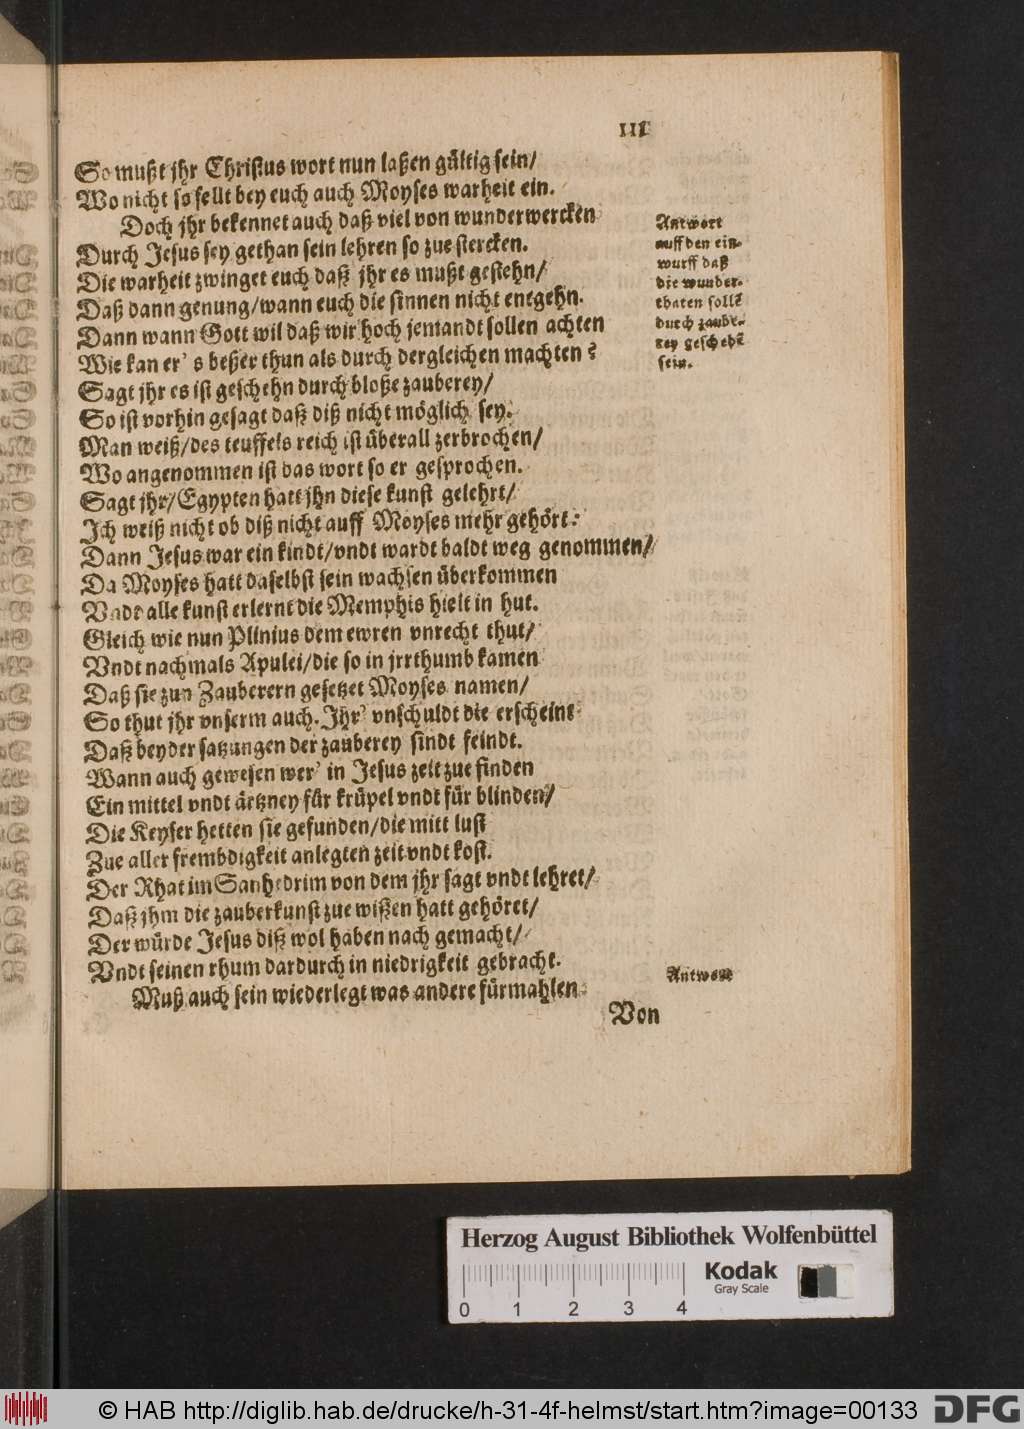 111
So mußt jhr Christus wort nun laßen gültig sein/
Wo nicht so fellt bey euch auch Moyses warheit ein.
Doch jhr bekennet auch daß viel von wunderwercken
Durch Jesus sey gethan sein lehren so zue stercken.
Die warheit zwinget euch daß jhr es mußt gestehn/
Daß dann genung/wann euch die sinnen nicht entgehn.
Dann wann Gott wil daß wir hoch jemandt sollen achten
Wie kan er's beßer thun als durch dergleichen machten?
Sagt jhr es ist geschehn durch bloße zauberey/
So ist vorhin gesagt daß diß nicht möglich sey.
Man weiß/des teuffels reich ist überall zerbrochen/
Wo angenommen ist das wort so er gesprochen.
Sagt jhr/Egypten hatt jhn diese kunst gelehrt/
Ich weiß nicht ob diß nicht auff Moyses mehr gehört:
Dann Jesus war ein kindt/vndt wardt baldt weg genommen/
Da Moyses hatt daselbst sein wachsen überkommen
Vndt alle kunst erlernt die Memphis hielt in hut.
Gleich wie nun Plinius dem ewren vnrecht thut/
Vndt nachmals Apulei/die so in jrrthumb kamen
Daß sie zun Zauberern gesetzet Moyses namen/
So thut jhr vnserm auch. Ihr' vnschuldt die erscheint
Daß beyder satzungen der zauberey sindt feindt.
Wann auch gewesen wer' in Jesus zeit zue finden
Ein mittel vndt ärtzney für krüpel vndt für blinden/
Die Keyser hetten sie gefunden/die mitt lust
Zue aller frembdigkeit anlegten zeit vndt kost.
Der Rhat im Sanhedrim von dem jhr sagt vndt lehret/
Daß jhm die zauberkunst zue wißen hatt gehöret/
Der würde Jesus diß wol haben nach gemacht/
Vndt seinen rhum dardurch in niedrigkeit gebracht.
Muß auch sein wiederlegt was andere fürmahlen
Von
Antwort
auff den ein-
wurff daß
die wunder-
thaten sollē
durch zaube-
rey geschehē
sein.
Antwort
Herzog August Bibliothek Wolfenbüttel
Kodak
Gray Scale
0 1 2 3 4
© HAB http://diglib.hab.de/drucke/h-31-4f-helmst/start.htm?image=00133
DFG